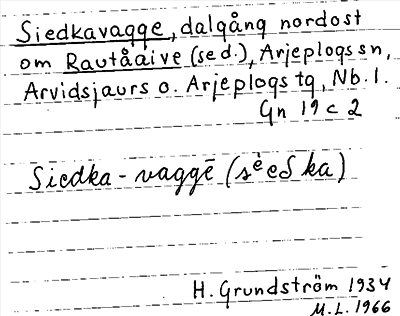 Siedkavagge, dalgång nordost
om Rautåaive (se d.), Arjeplogs sn,
Arvidsjaurs o. Arjeplogs tg, Nb. l.
Gn 19 c 2
Siedka-vaggē (sèeδka)
H. Grundström 1934
M.L. 1966